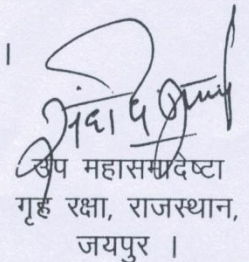 ।
उप महासमादेष्टा
गृह रक्षा, राजस्थान,
जयपुर ।